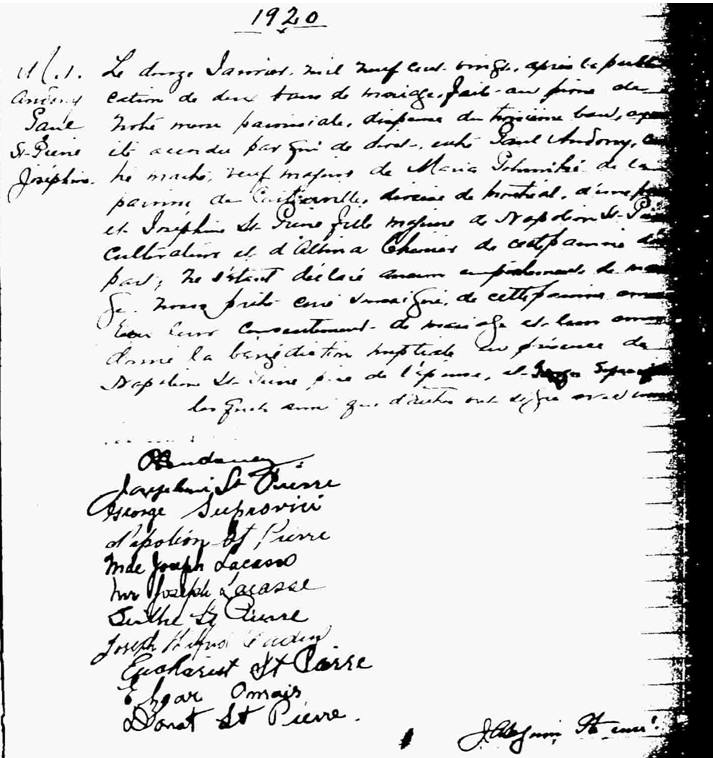 1920
M.1.
Antony
Paul
St-Pierre
Josephine.
Le douze Janvier mil neuf cent vingt, après la publi
cation de deux bans de mariage, faite au prone de
notre messe paroissiale, dispense du troisième ban, ayant
été accordée par qui de droit, entre Paul Andony,
veuf majeur de Maria de la
paroisse de Cartierville, diocèse de Montréal, d'une part
et Joséphine St-Pierre fille majeure de Napoléon St-Pierre
cultivateur et d'Albina Chenier de cette paroisse d'autre
part; ne s'étant déclaré aucun empêchement de maria
ge. Nous prêtre curé soussigné, de cette paroisse avons
reçu leur consentement de mariage et leur avons
donné la bénédiction nuptiale en présence de
Napoléon St-Pierre, père de l'épouse, et
lesquels ainsi que d'autres ont signé avec nous
Josephine St Pierre
George Suprovici
Napoléon St Pierre
Mde Joseph Lacasse
Mr Joseph Lacasse
Berthe St Pierre
Joseph
Eucharist St Pierre
Edgar Omais
Donat St Pierre.
Ptre curé